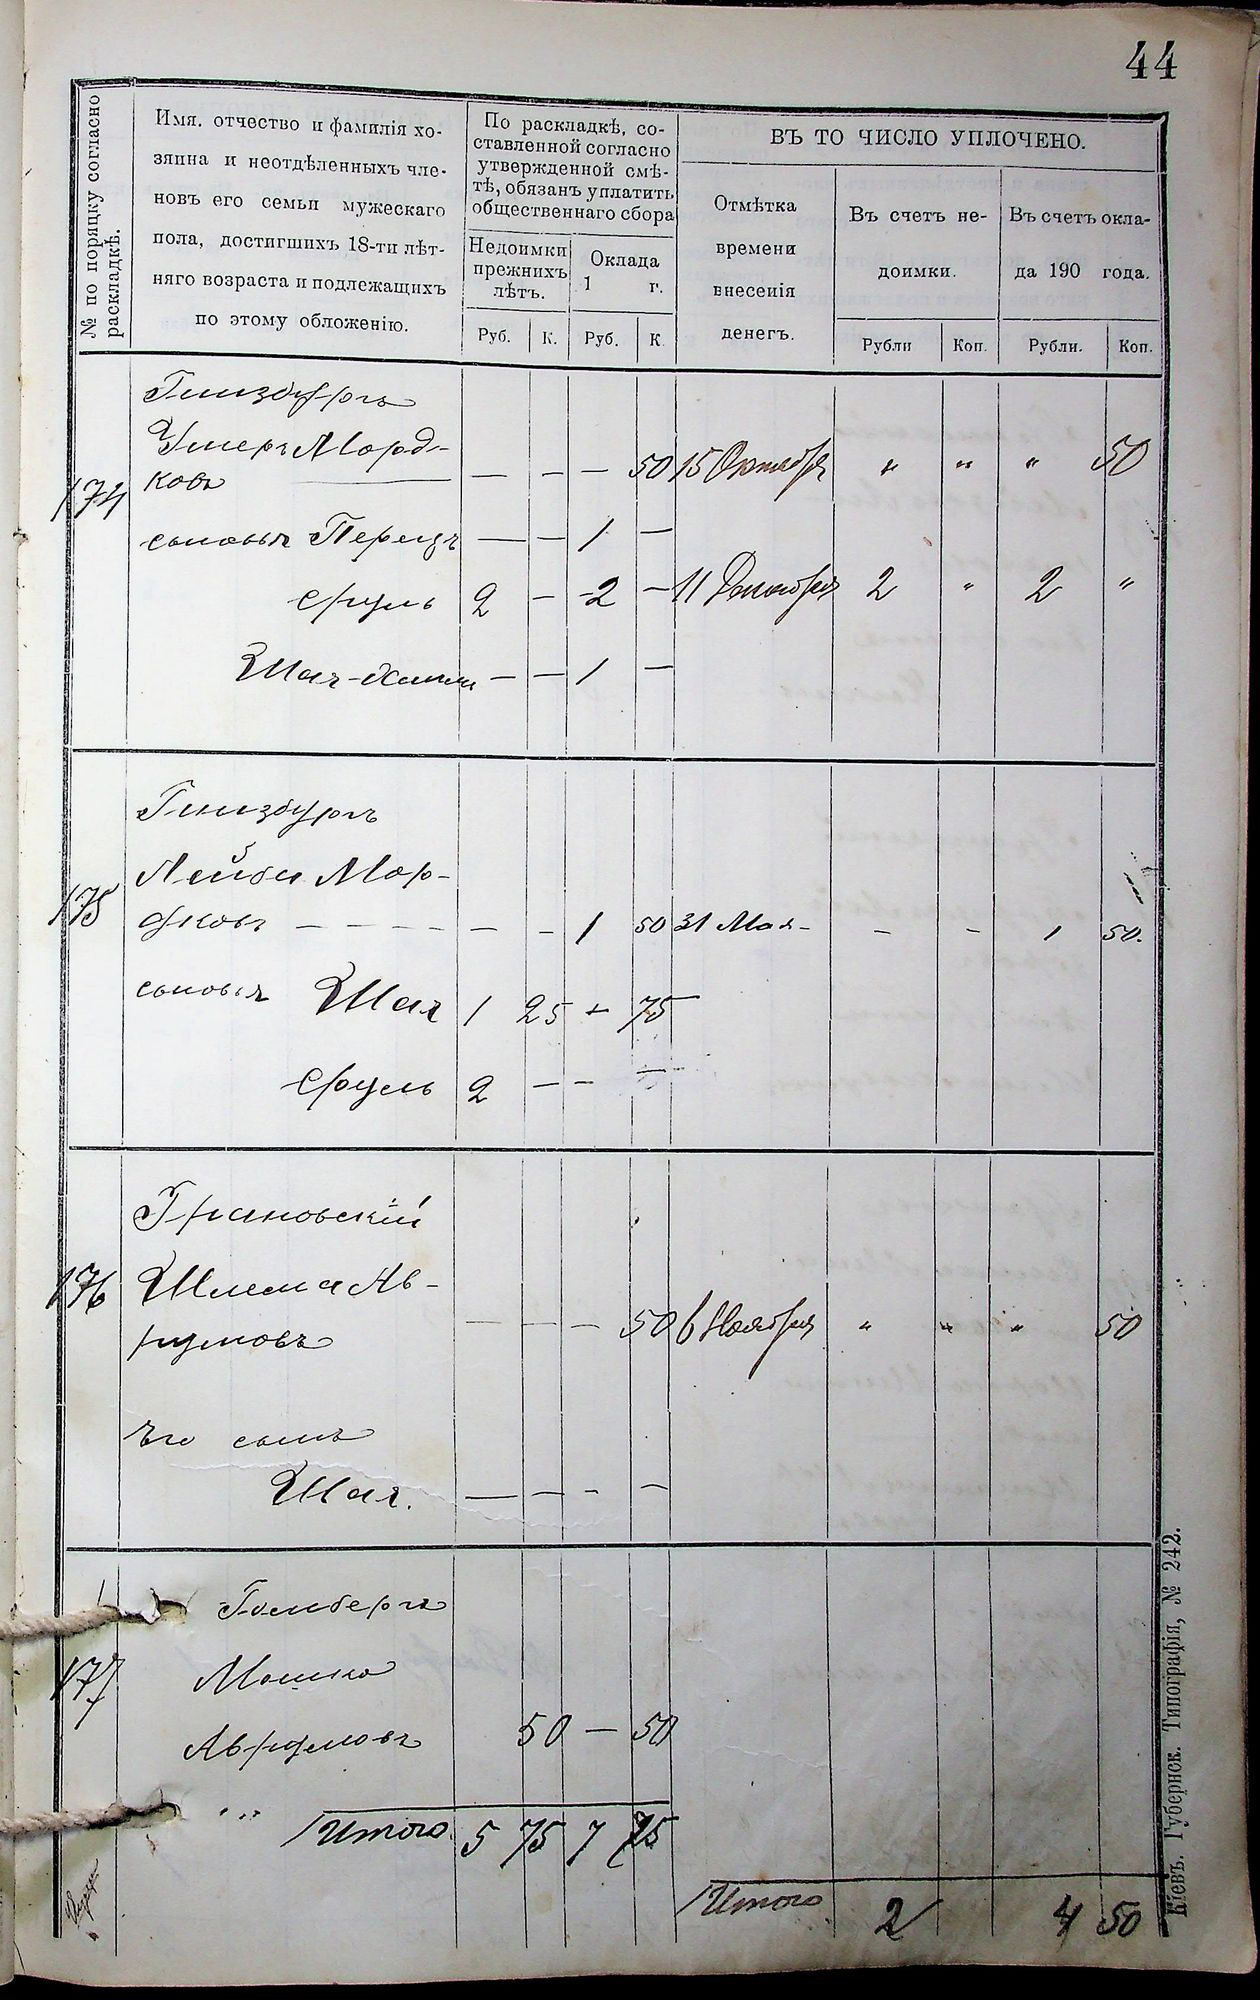 44
№ по порядку согласно раскладкѣ.
Имя, отчество и фамилія хо-
зяина и неотдѣленныхъ чле-
новъ его семьи мужескаго
пола, достигшихъ 18-ти лѣт-
няго возраста и подлежащихъ
по этому обложенію.
По раскладкѣ, со-
ставленной согласно
утвержденной смѣ-
тѣ, обязанъ уплатить
общественнаго сбора
Недоимки
прежнихъ
лѣтъ.
Оклада
1 г.
Руб. К. Руб. К.
ВЪ ТО ЧИСЛО УПЛОЧЕНО.
Отмѣтка
времени
внесенія
денегъ.
Въ счетъ не-
доимки.
Въ счетъ окла-
да 190 года.
Рубли Коп. Рубли. Коп.
Гинзбургъ
Ушеръ Морд-
174 ковъ — — — 50 15 Октября " " " 50
сыновья Перецъ — — 1 —
Сруль 2 — 2 — 11 Декабря 2 " 2 "
Шая — — 1 —
Гинзбургъ
Лейба Мор-
175 дковъ — — — — — — 1 50 31 Мая - — — 1 50.
сыновья Шая 1 25 — 75
Сруль 2 — — —
Грановскій
176 Шлема Ав-
румовъ — — — 50 6 Ноября " " " 50
Его сынъ
Шая. — — — —
Гольбергъ
177 Мошко
Аврумовъ 50 — 50
" " Итого 5 75 7 75
Итого 2 4 50
Кіевъ. Губернск. Типографія, № 242.